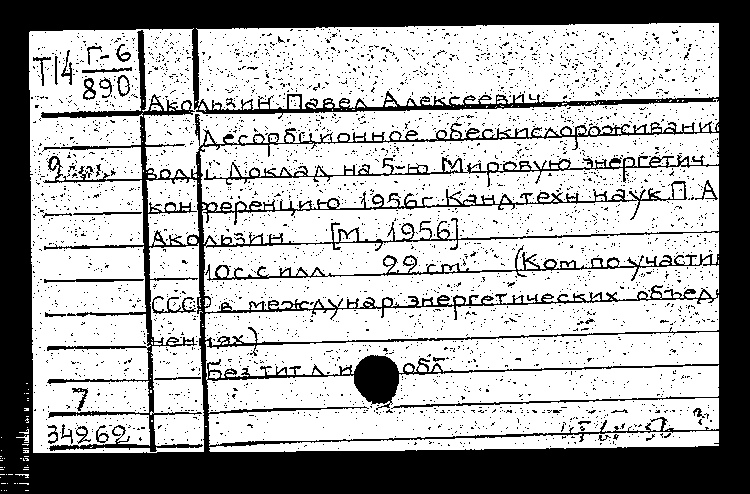 Т14 Г-6
890
Акользин, Павел Алексеевич.
Десорбционное обескислороживание
воды. Доклад на 5-ю Мировую энергетич.
конференцию 1956г. Канд. техн. наук П. А.
Акользин. [М., 1956].
10с. с илл. 22 см. (Ком. по участи
СССР в междунар. энергетических объеди
нениях)
Без тит. л. и обл.
7
34262